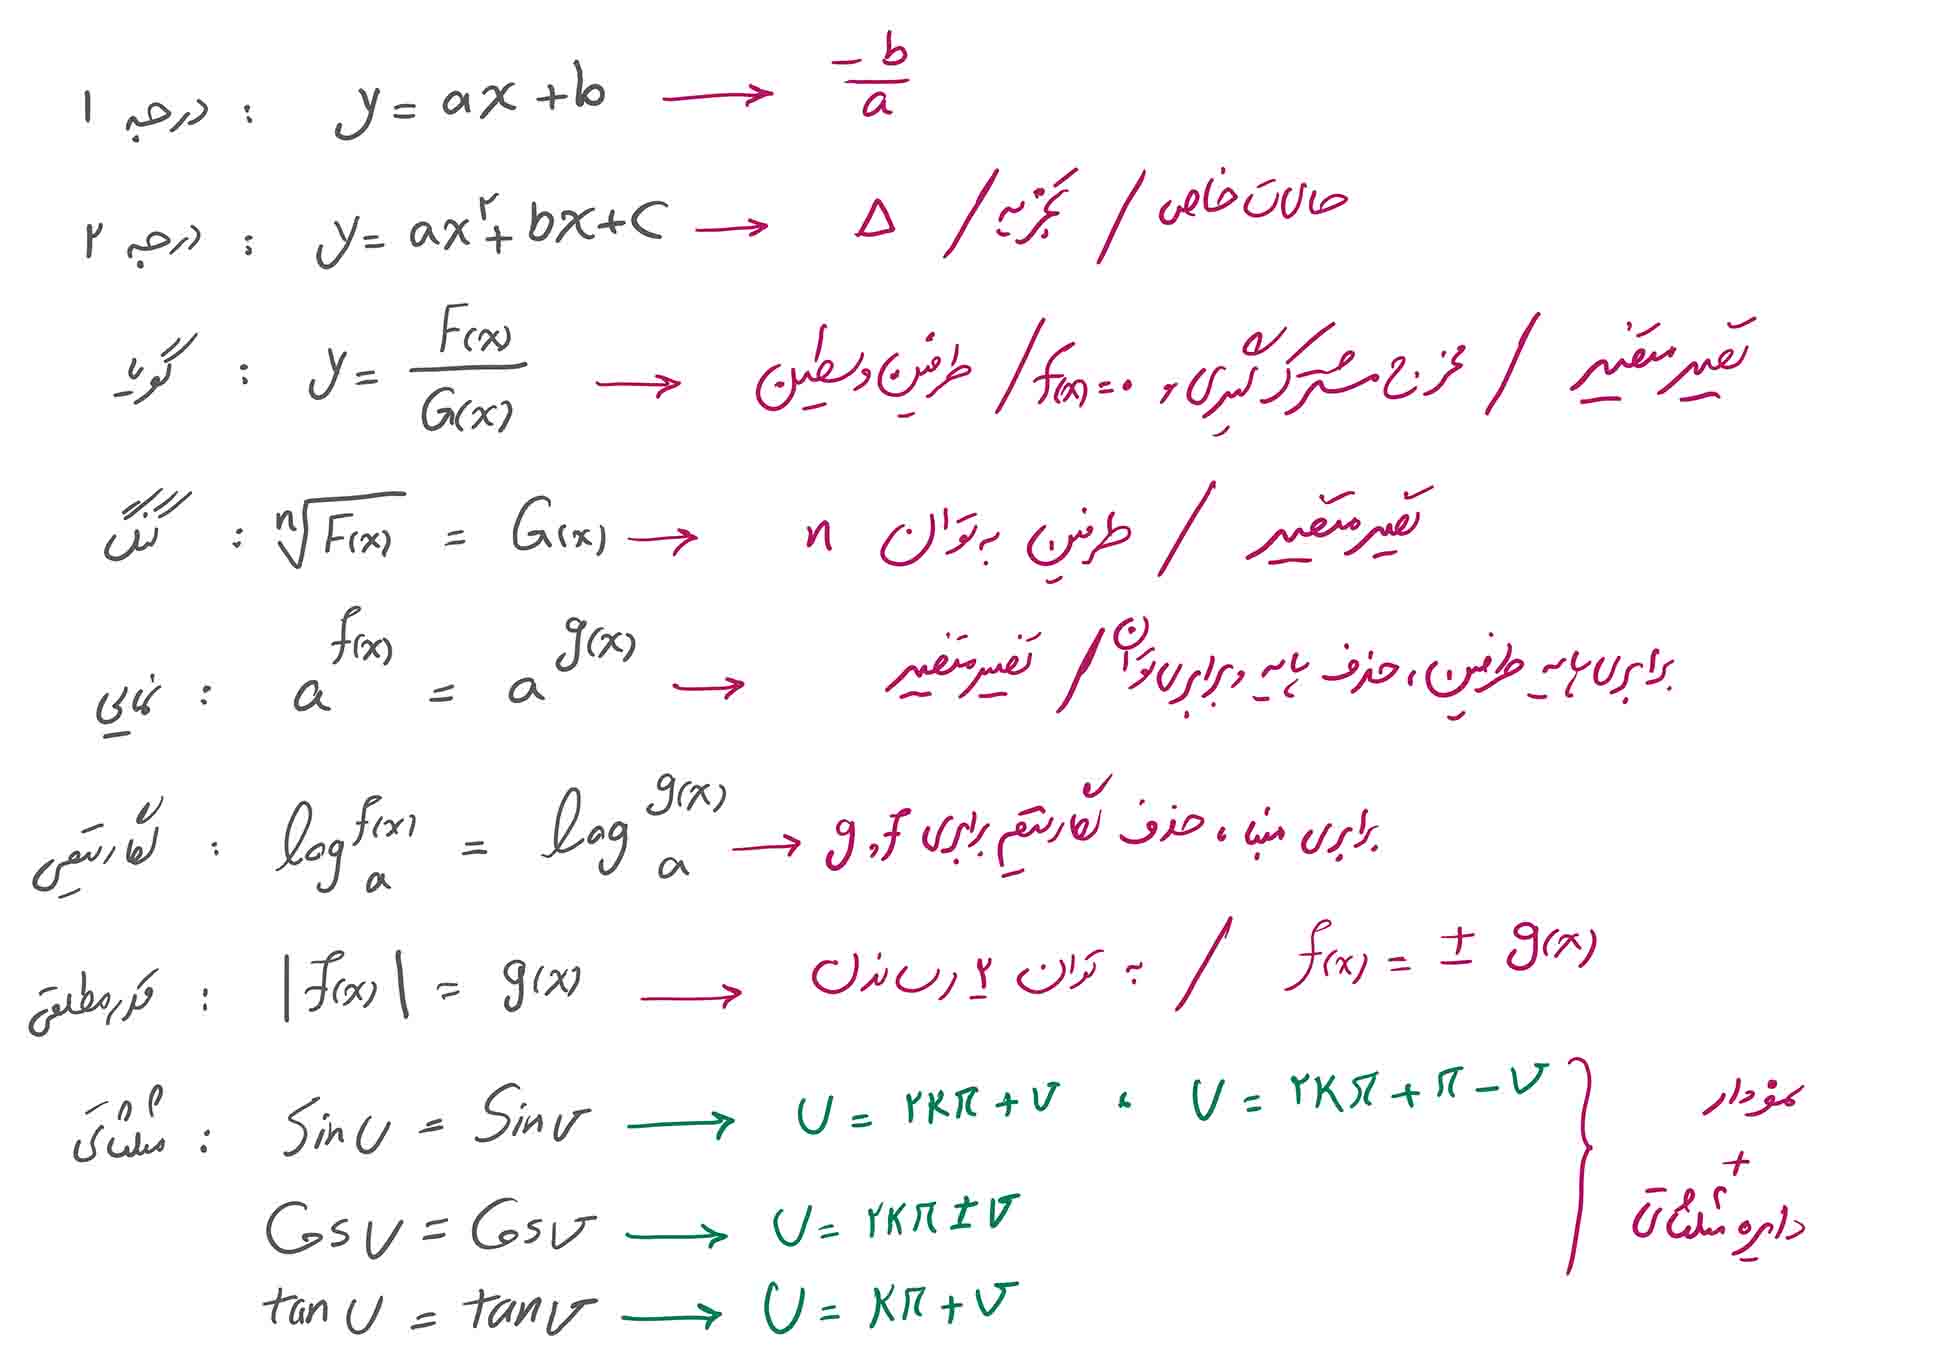 درجه ۱ : y = ax + b → -b/a
درجه ۲ : y = ax² + bx + c → Δ / تجزیه / حالات خاص
گویا : y = F(x)/G(x) → طرفین وسطین / f(x) = ۰ و مخرج مشترک گیری / تغییر متغییر
گنگ : ⁿ√F(x) = G(x) → طرفین به توان n / تغییر متغییر
نمایی : a^f(x) = a^g(x) → برابری پایه طرفین، حذف پایه و برابری توان / تغییر متغییر
لگاریتمی : log_a f(x) = log_a g(x) → برابری مبنا، حذف لگاریتم برابری f و g
قدرمطلقی : |f(x)| = g(x) → به توان ۲ رساندن / f(x) = ± g(x)
مثلثاتی : Sin U = Sin V → U = ۲kπ + V ، U = ۲kπ + π - V
Cos U = Cos V → U = ۲kπ ± V
tan U = tan V → U = kπ + V
نمودار
+
دایره مثلثاتی